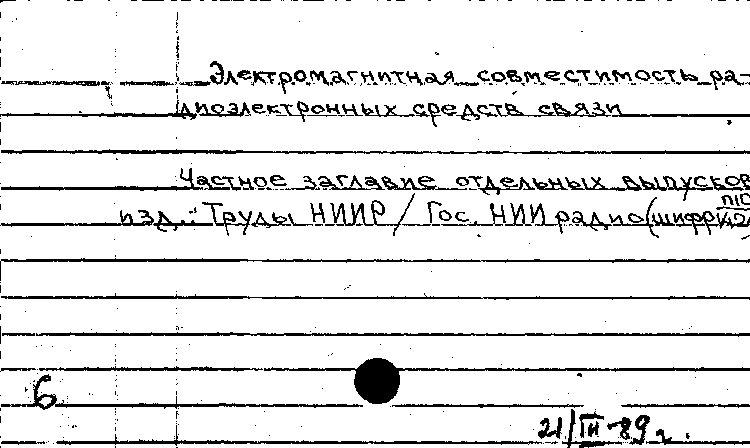 Электромагнитная совместимость ра-
диоэлектронных средств связи
Частное заглавие отдельных выпусков
изд.: Труды НИИР / Гос. НИИ радио (шифр
6
21/III-89 г.